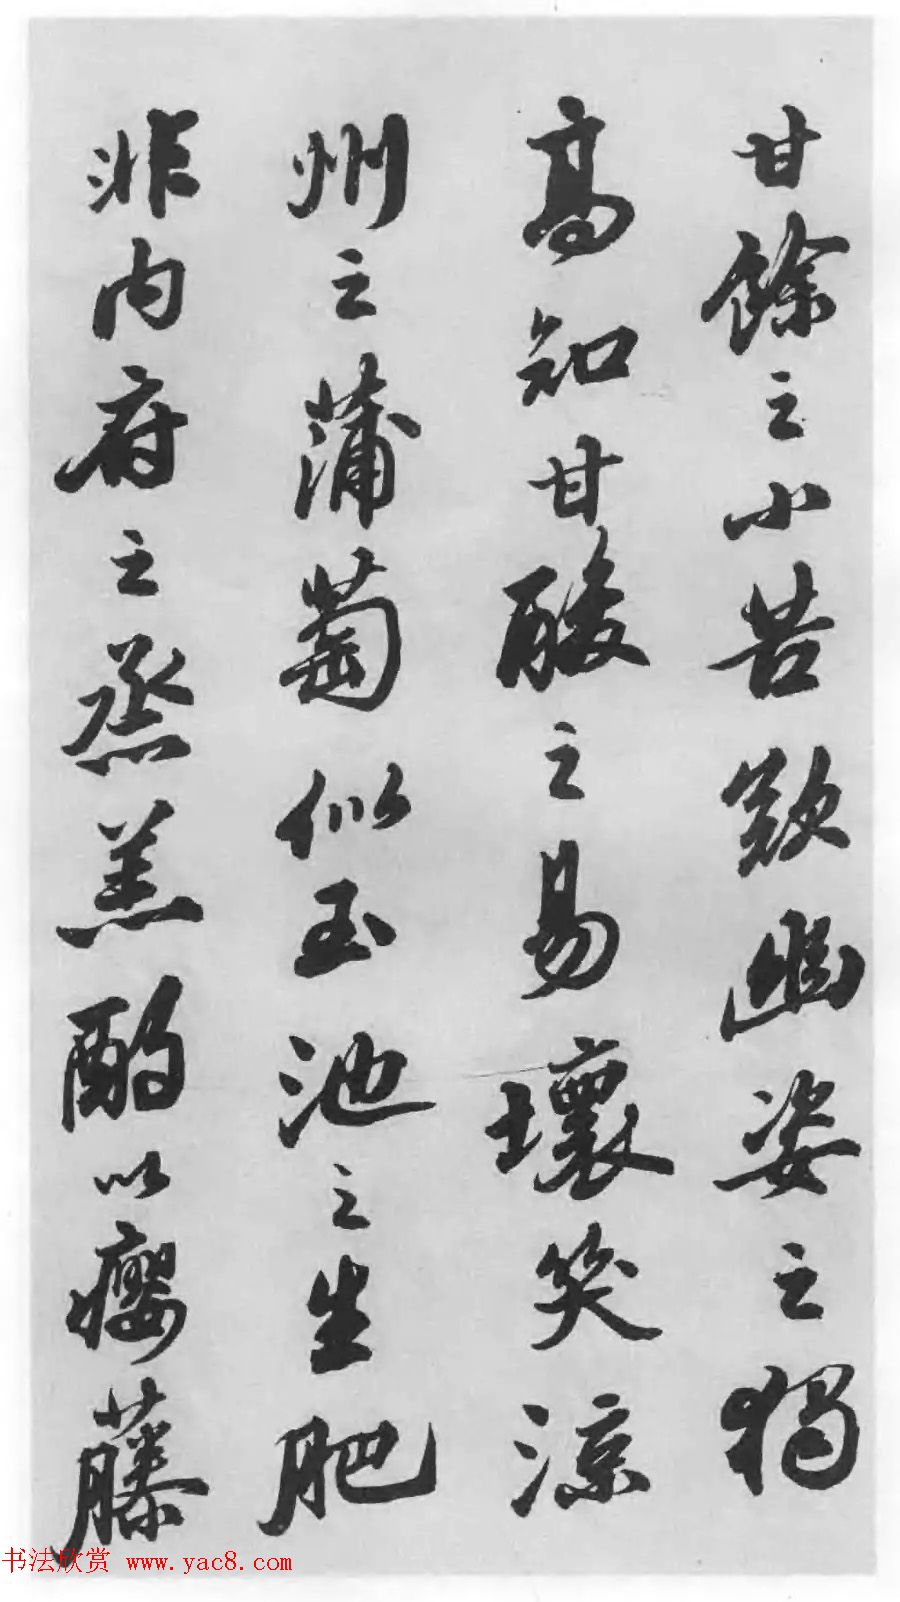 甘餘之小苦歎幽姿之獨
高知甘酸之易壞笑涼
州之蒲萄似玉池之生肥
非內府之烝羔酌以癭藤
书法欣赏 www.yac8.com